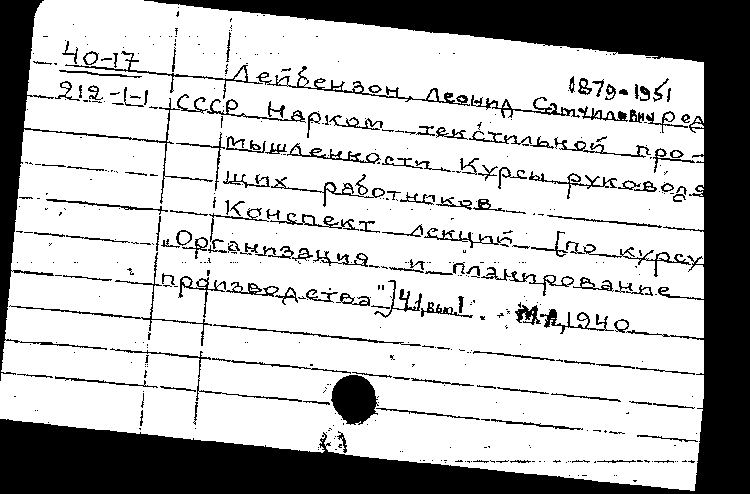 40-17
212-1-1
1879-1951
Лейбензон, Леонид Самуилович ред
СССР. Нарком текстильной про-
мышленности. Курсы руководя
щих работников.
Конспект лекций [по курсу
„Организация и планирование
производства"] Ч.1, вып.1. М-Л, 1940.